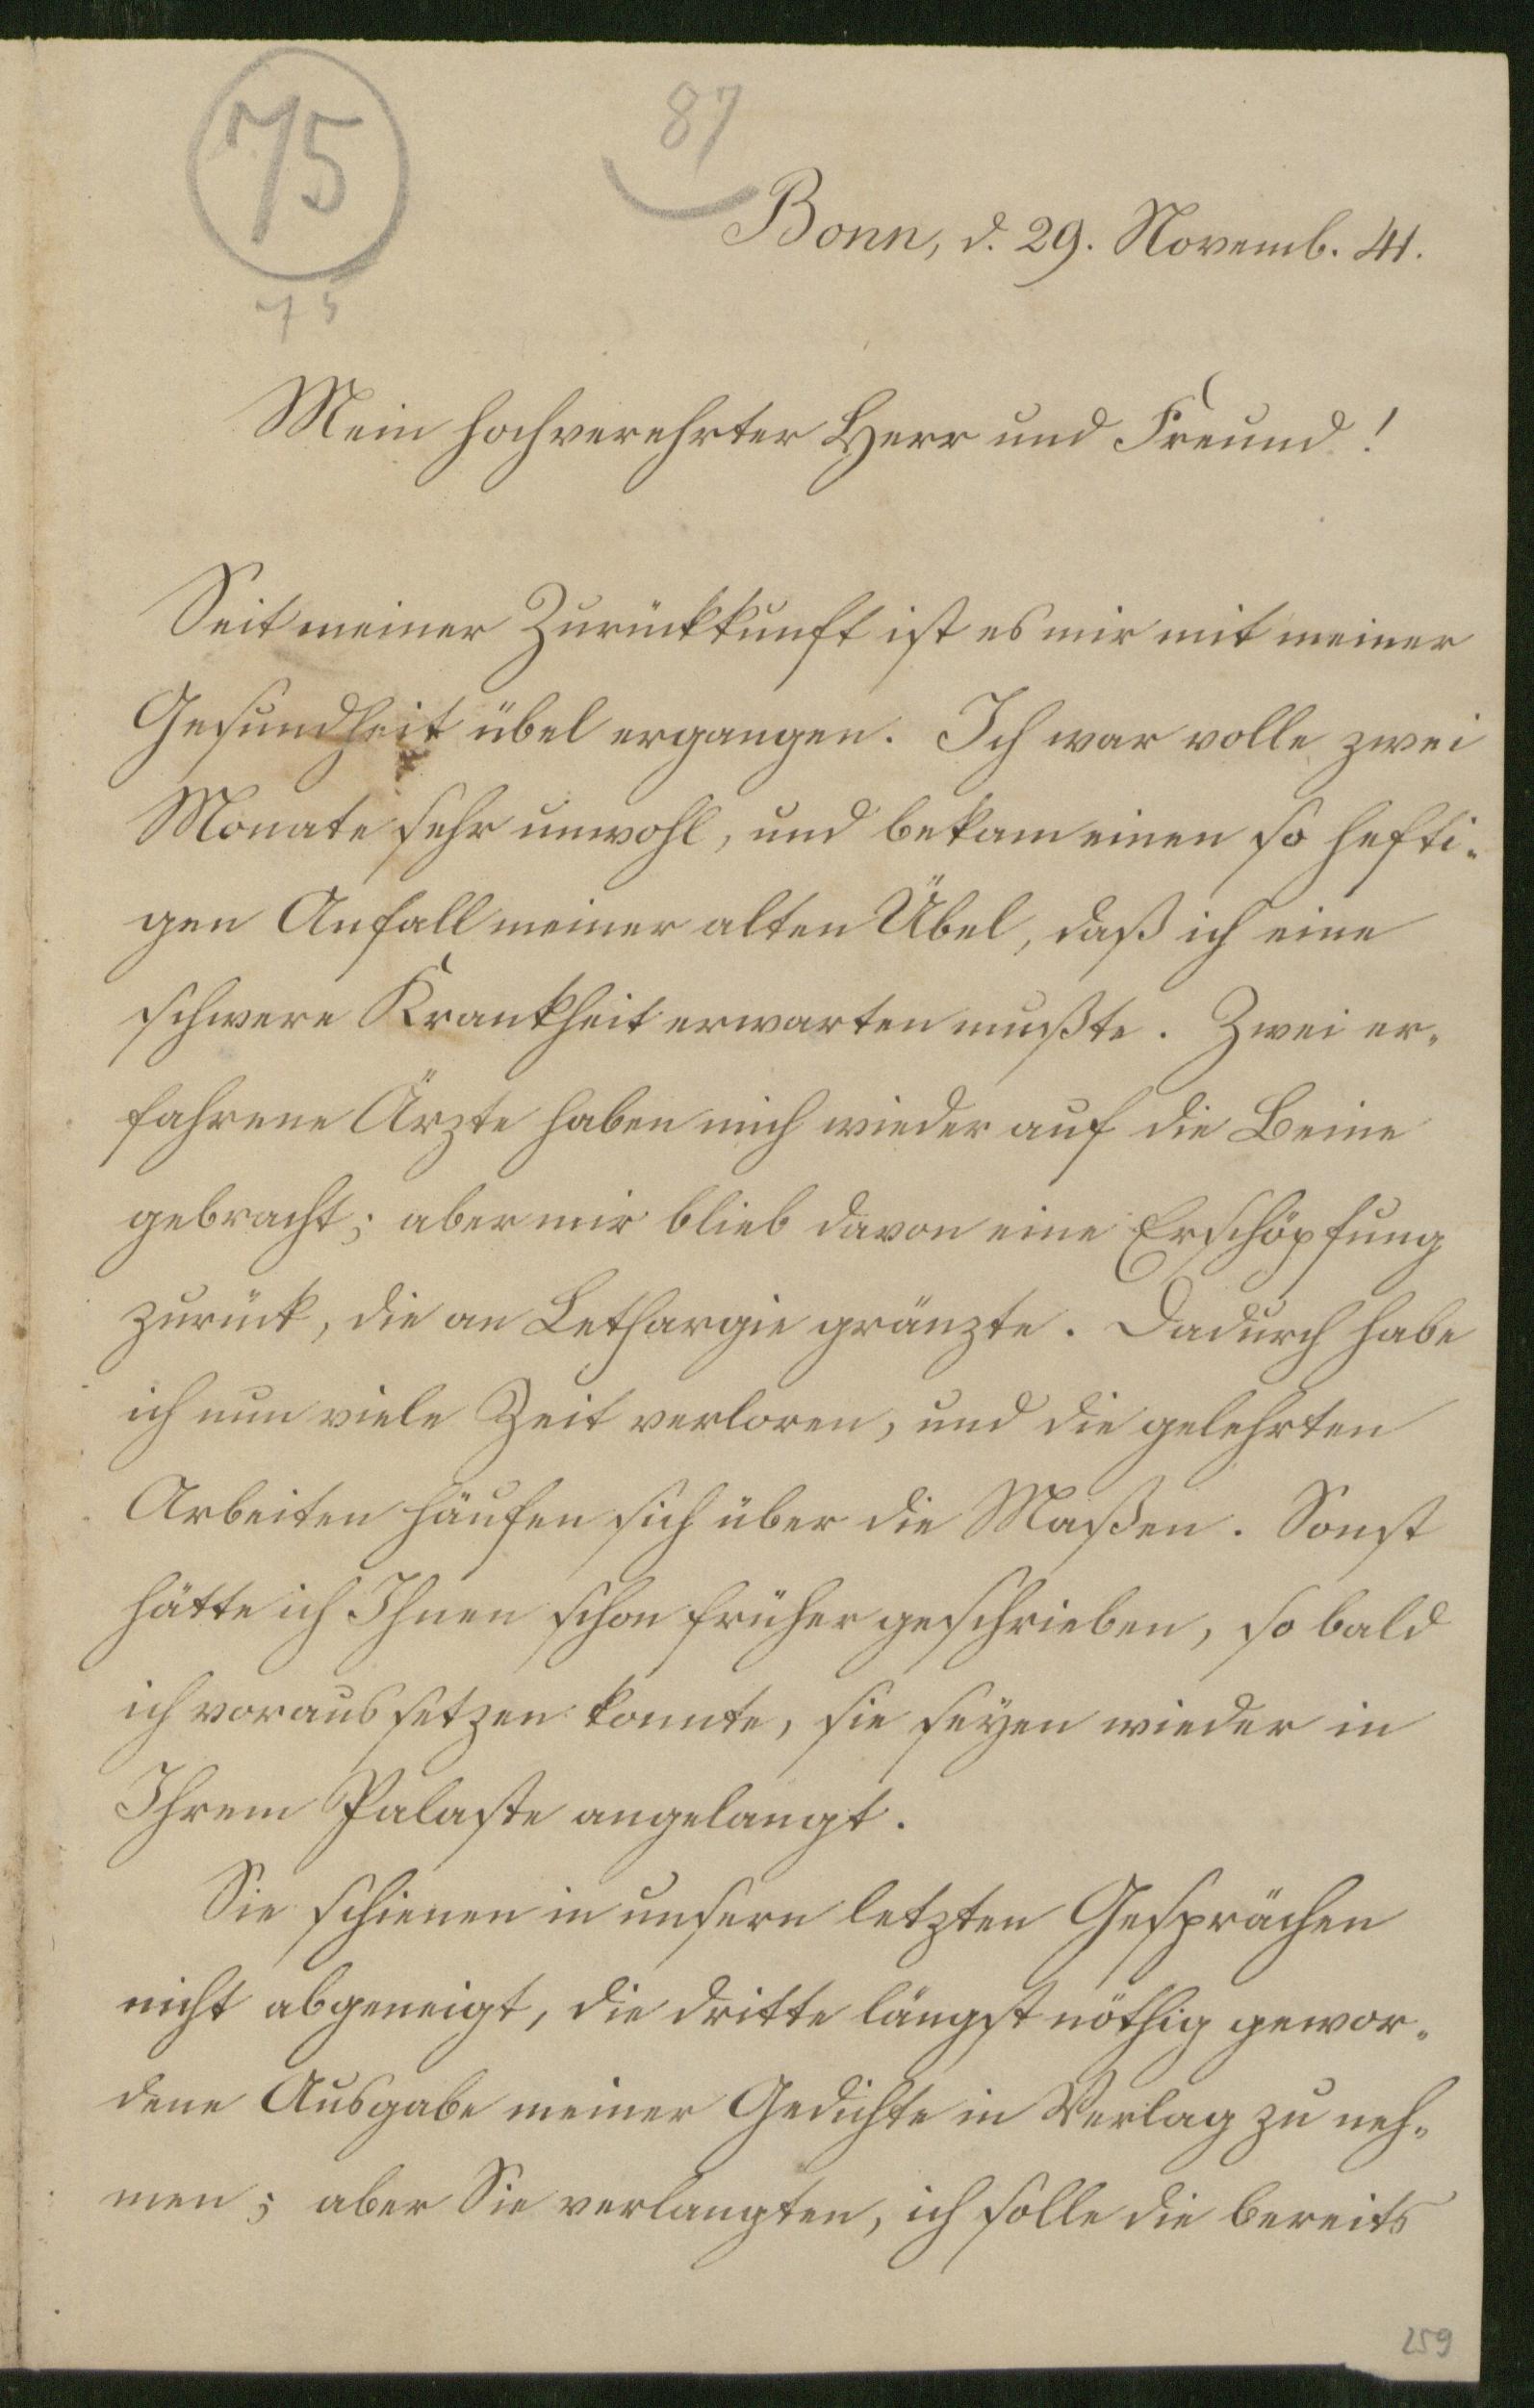 75
87
75
Bonn, d. 29. Novemb. 41.
Mein hochverehrter Herr und Freund!
Seit meiner Zurückkunft ist es mir mit meiner
Gesundheit übel ergangen. Ich war volle zwei
Monate sehr unwohl, und bekam einen so hefti-
gen Anfall meiner alten Übel, daß ich eine
schwere Krankheit erwarten mußte. Zwei er-
fahrene Ärzte haben mich wieder auf die Beine
gebracht; aber mir blieb davon eine Erschöpfung
zurück, die an Lethargie gränzte. Dadurch habe
ich nun viele Zeit verloren, und die gelehrten
Arbeiten häufen sich über die Maßen. Sonst
hätte ich Ihnen schon früher geschrieben, so bald
ich voraussetzen konnte, sie seyen wieder in
Ihrem Palaste angelangt.
Sie schienen in unsern letzten Gesprächen
nicht abgeneigt, die dritte längst nöthig gewor-
dene Ausgabe meiner Gedichte in Verlag zu neh-
men; aber Sie verlangten, ich solle die bereits
259